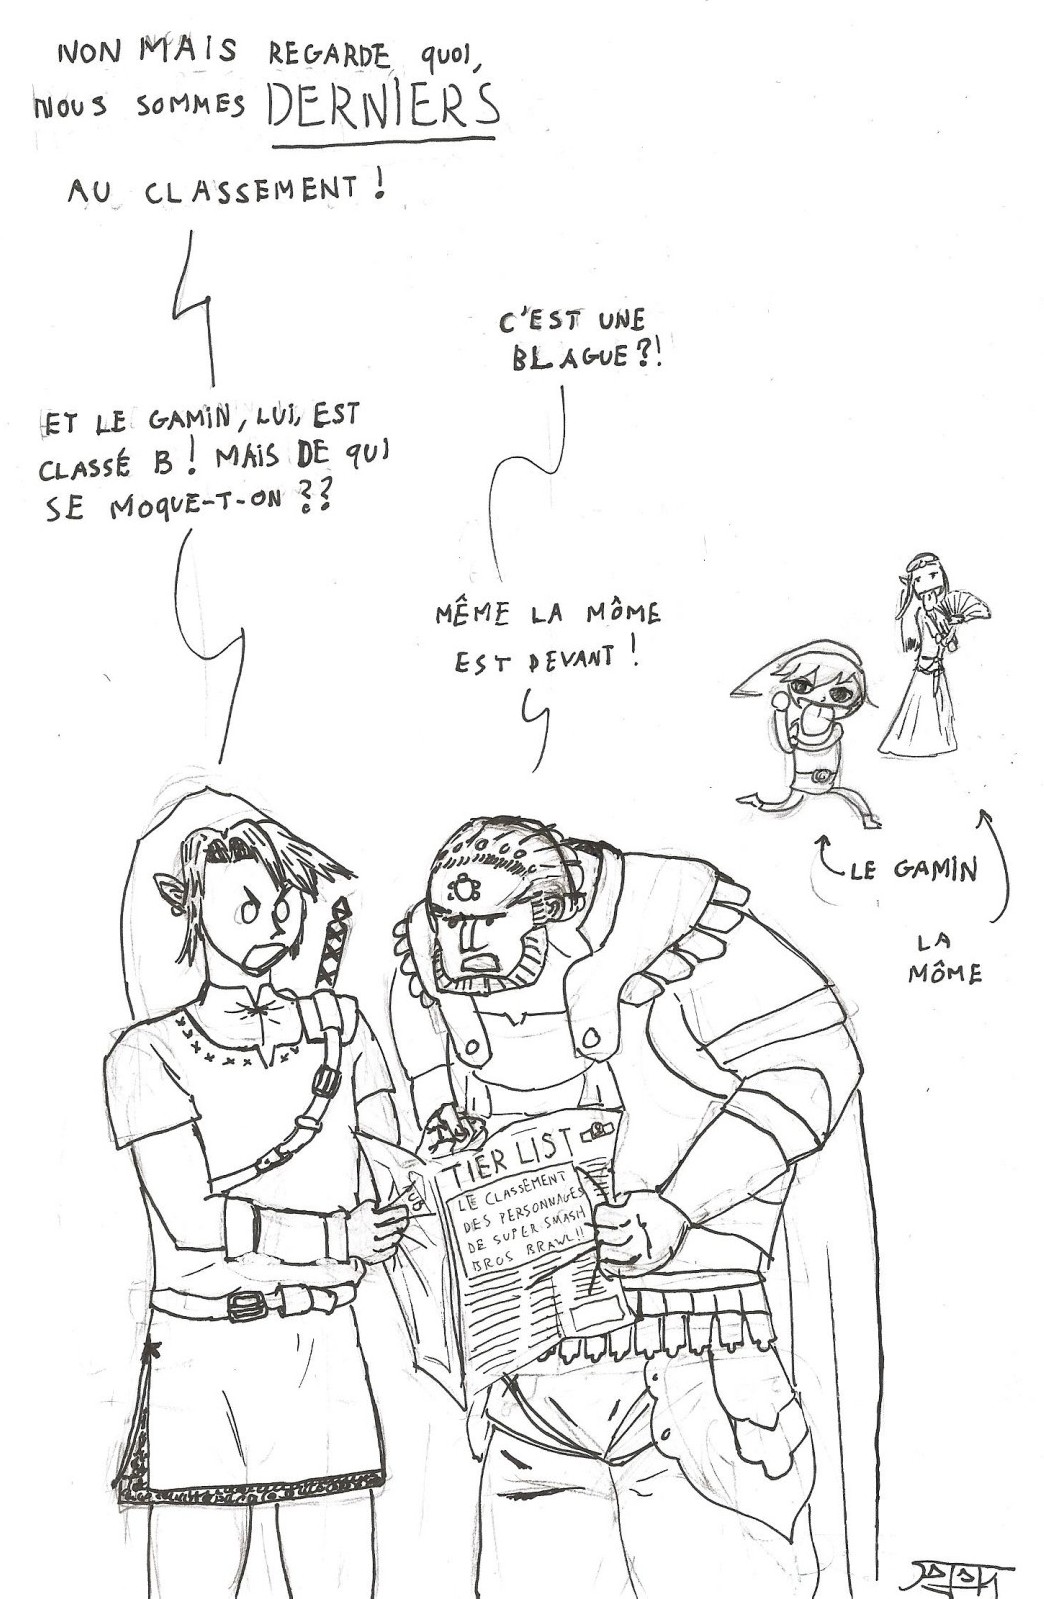 NON MAIS REGARDE quoi,
NOUS SOMMES DERNIERS
AU CLASSEMENT !
C'EST UNE
BLAGUE ?!
ET LE GAMIN, LUI, EST
CLASSÉ B ! MAIS DE QUI
SE MOQUE-T-ON ??
MÊME LA MÔME
EST DEVANT !
LE GAMIN
LA
MÔME
TIER LIST
LE CLASSEMENT
DES PERSONNAGES
DE SUPER SMASH
BROS BRAWL !!